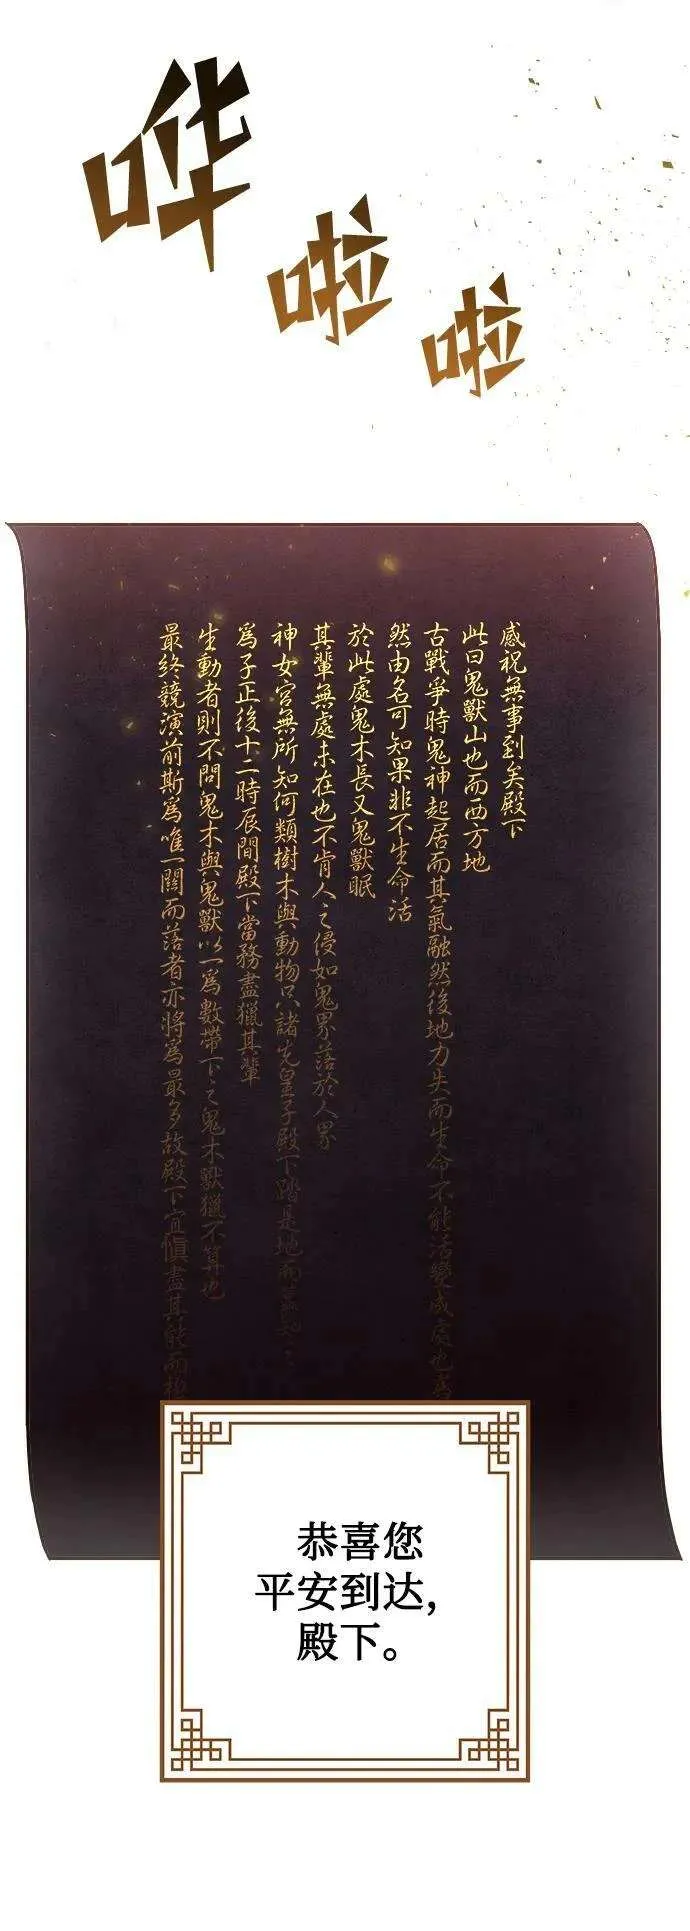 哗
啦
啦
感祝無事到矣殿下
此曰鬼獸山也而西方地
古戰爭時鬼神起居而其氣融然後地力失而生命不能活變成處也
然由名可知果非不生命活
於此處鬼木長又鬼獸眠
其輩無處未在也不肯人之侵如鬼界落於人界
神女宮無所知何類樹木與動物只諸先皇子殿下踏是地而
爲子正後十二時辰間殿下當務盡獵其輩
生動者則不問鬼木與鬼獸以一爲數帶下之鬼木獸獵不算也
最終競演前斯爲唯一關而落者亦將爲最多故殿下宜愼盡其能而
恭喜您
平安到达,
殿下。